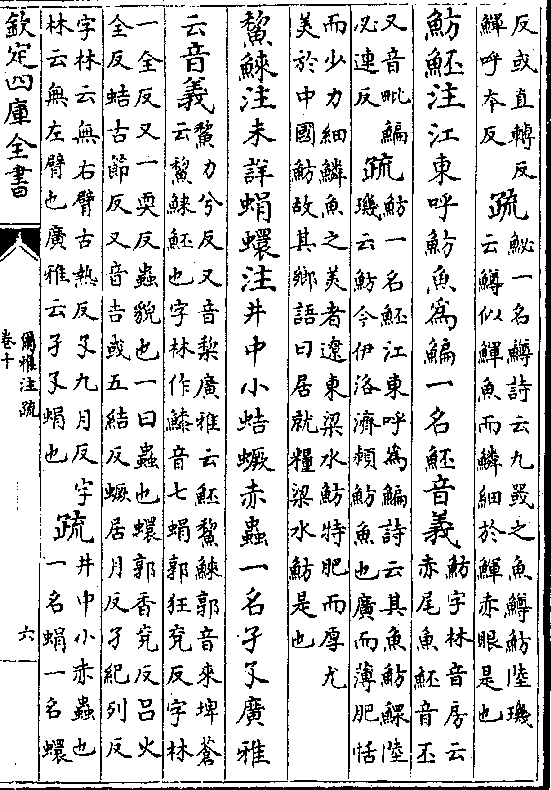 反或直轉反
鯶呼本反
疏
鮅一名鱒詩云九罭之魚鱒魴陸璣
云鱒似鯶魚而鱗細於鯶赤眼是也
魴魾注江東呼魴魚為鯿一名魾音義
魴字林音房云
赤尾魚魾音丕
又音毗鯿
必連反
疏
魴一名魾江東呼為鯿詩云其魚魴鰥陸
璣云魴今伊洛濟潁魴魚也廣而薄肥恬
而少力細鱗魚之美者遼東梁水魴特肥而厚尤
美於中國魴故其鄉語曰居就糧梁水魴是也
鯬鯠注未詳蜎蠉注井中小蛣蟩赤蟲一名孑孓廣雅
云音義
鯬力兮反又音梨廣雅云魾鯬鯠郭音來埤蒼
云鯬鯠魾也字林作音七蜎郭狂兗反字林
一全反又一耎反蟲貌也一曰蟲也蠉郭香兗反呂火
全反蛣古節反又音吉或五結反蟩居月反孑紀列反
字林云無右臂古熱反孓九月反字
林云無左臂也廣雅云孑孓蜎也
疏
井中小赤蟲也
一名蜎一名蠉
欽定四庫全書
爾雅注疏
卷十
六